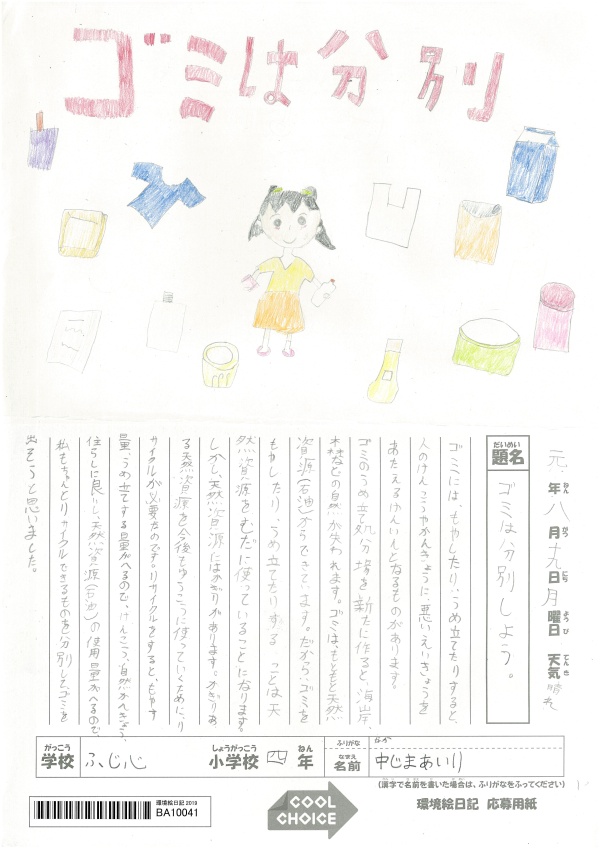 ゴミは分別
元年八月十九日月曜日 天気 晴れ
ねん がつ にち ようび てんき
だいめい
題名
ゴミは分別しよう。
ゴミには、もやしたり、うめ立てたりすると、
人のけんこうやかんきょうに、悪いえいきょうを
あたえるげんいんとなるものがあります。
ゴミのうめ立て処分場を新たに作ると、海岸、
森などの自然が失われます。ゴミは、もともと天然
資源(石油)からできています。だから、ゴミを
もやしたり、うめ立てたりする ことは天
然資源をむだに使っていることになります。
しかし、天然資源にはかぎりがあります。かぎりあ
る天然資源を今後もゆうこうに使っていくために、リ
サイクルが必要なのです。リサイクルをすると、もやす
量、うめ立てする量がへるので、けんこう、自然かんきょう、
住らしに良いし、天然資源(石油)の使用量がへるので、
私もちゃんとリサイクルできるものを分別してゴミを
出そうと思いました。
がっこう
学校
ふじ心
しょうがっこう ねん
小学校 四 年
ふりがな なか
なまえ
名前
中じまあいり
(漢字で名前を書いた場合は、ふりがなをふってください)
環境絵日記 2019
BA10041
COOL
CHOICE
環境絵日記 応募用紙